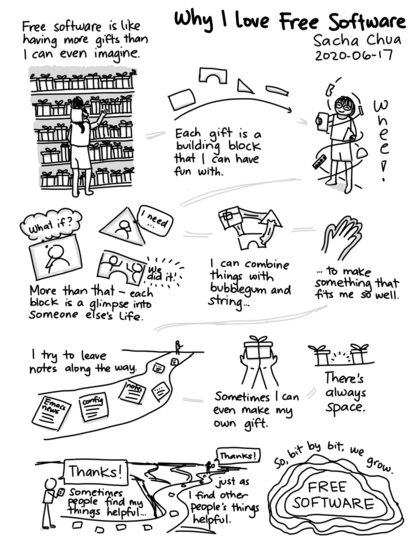 Why I Love Free Software
Sacha Chua
2020-06-17
Free software is like
having more gifts than
I can even imagine.
Each gift is a
building block
that I can have
fun with.
Whee!
What if?
I need
...
We
did it!
More than that – each
block is a glimpse into
someone else's life.
I can combine
things with
bubblegum and
string...
... to make
something that
fits me so well.
I try to leave
notes along the way.
Emacs
news
config
notes
Sometimes I can
even make my
own gift.
There's
always
space.
Thanks!
Sometimes
people find my
things helpful...
Thanks!
just as
I find other
people's things
helpful.
So, bit by bit, we grow.
FREE
SOFTWARE